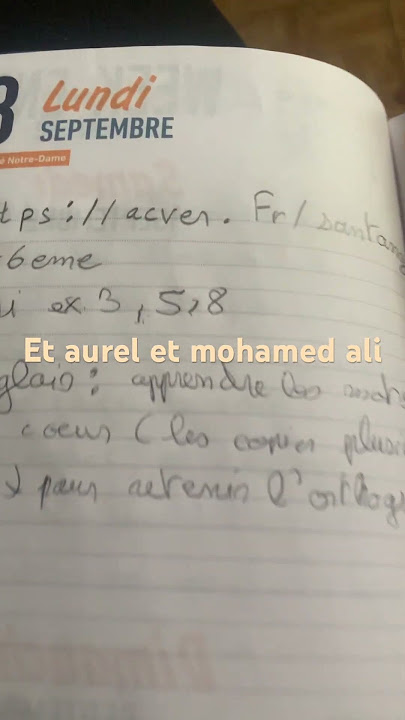 8 Lundi
SEPTEMBRE
é Notre-Dame
tps://acver.Fr/santang
6eme
i ex.3,5,8
Et aurel et mohamed ali
glais: apprendre les mots
coeur (les copier plusi
pour retenir l'orthog